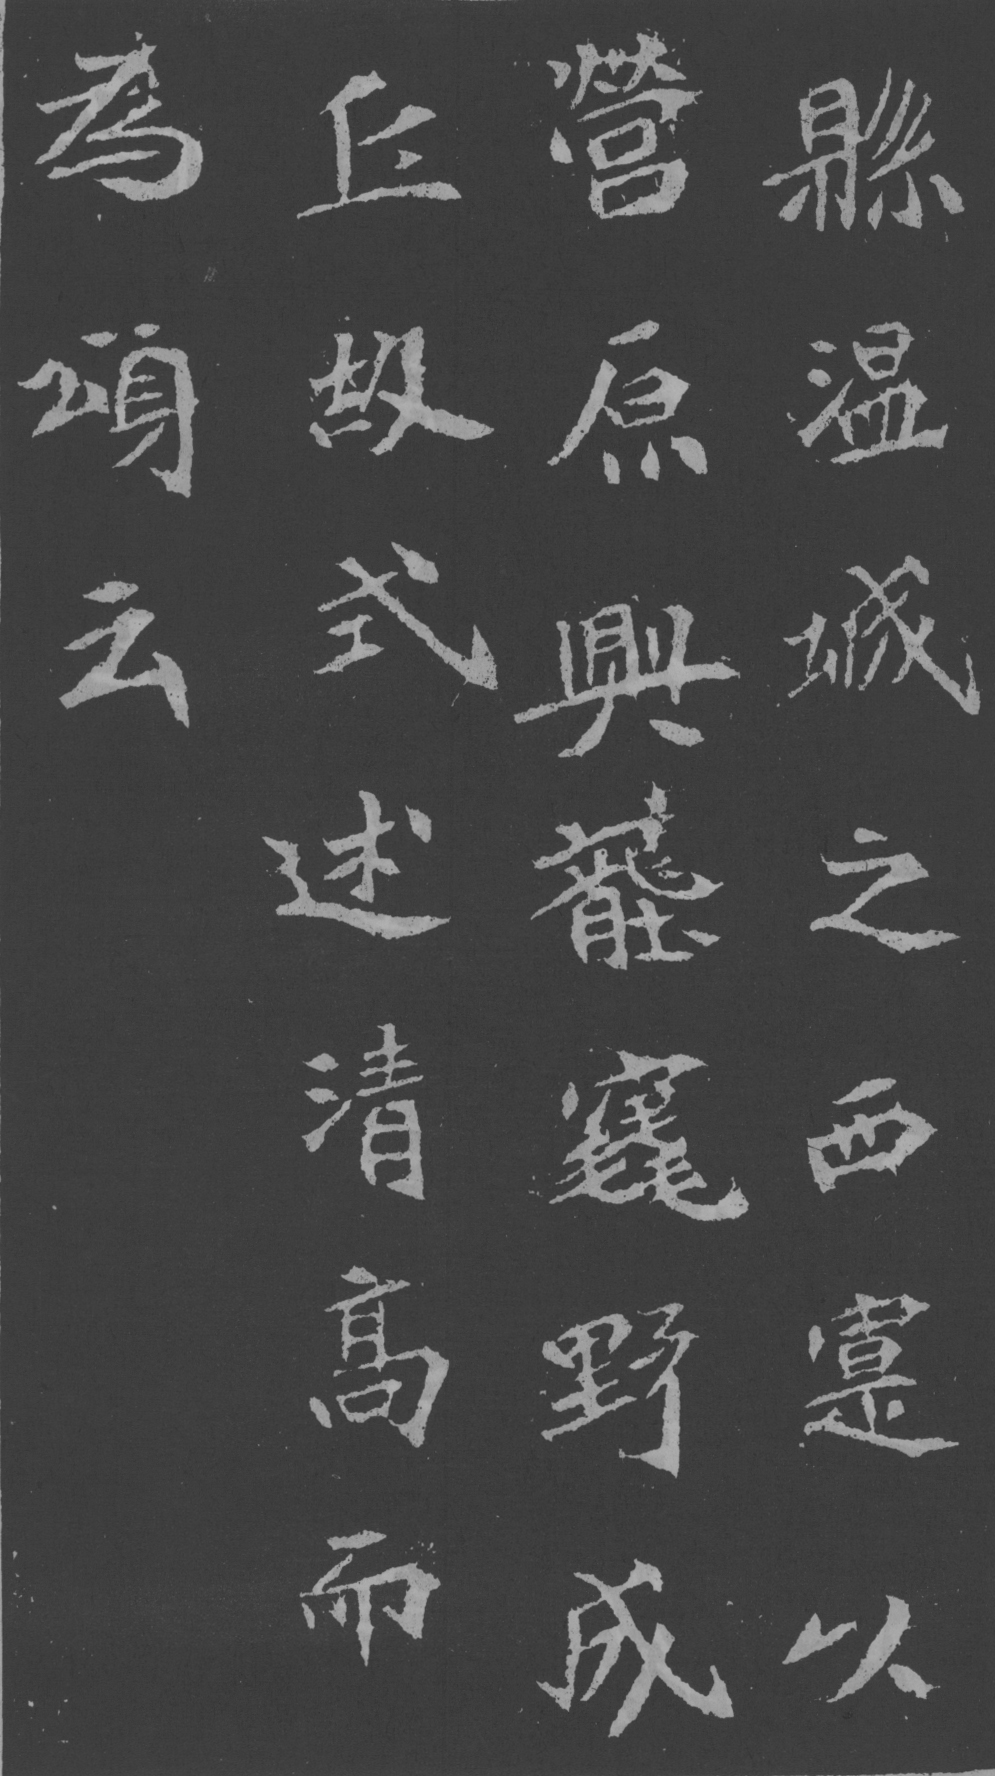 縣溫城之西寔以
營原興蘢窺野成
丘故式述清高而
為頌云